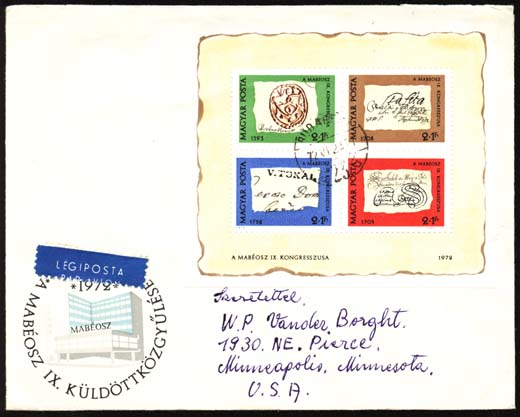 MAGYAR POSTA
A MABÉOSZ IX. KONGRESSZUSA
1593
2+1Ft
MAGYAR POSTA
A MABÉOSZ IX. KONGRESSZUSA
1708
2+1Ft
MAGYAR POSTA
A MABÉOSZ IX. KONGRESSZUSA
V. TOKAI
1738
2+1Ft
MAGYAR POSTA
A MABÉOSZ IX. KONGRESSZUSA
1705
2+1Ft
A MABÉOSZ IX. KONGRESSZUSA 1972
LÉGIPOSTA
PAR AVION
*1972*
MABÉOSZ
A MABÉOSZ IX. KÜLDÖTTKÖZGYŰLÉSE
Szeretettel,
W.P. Vander Borght.
1930. NE. Pierce,
Minneapolis, Minnesota,
U.S.A.